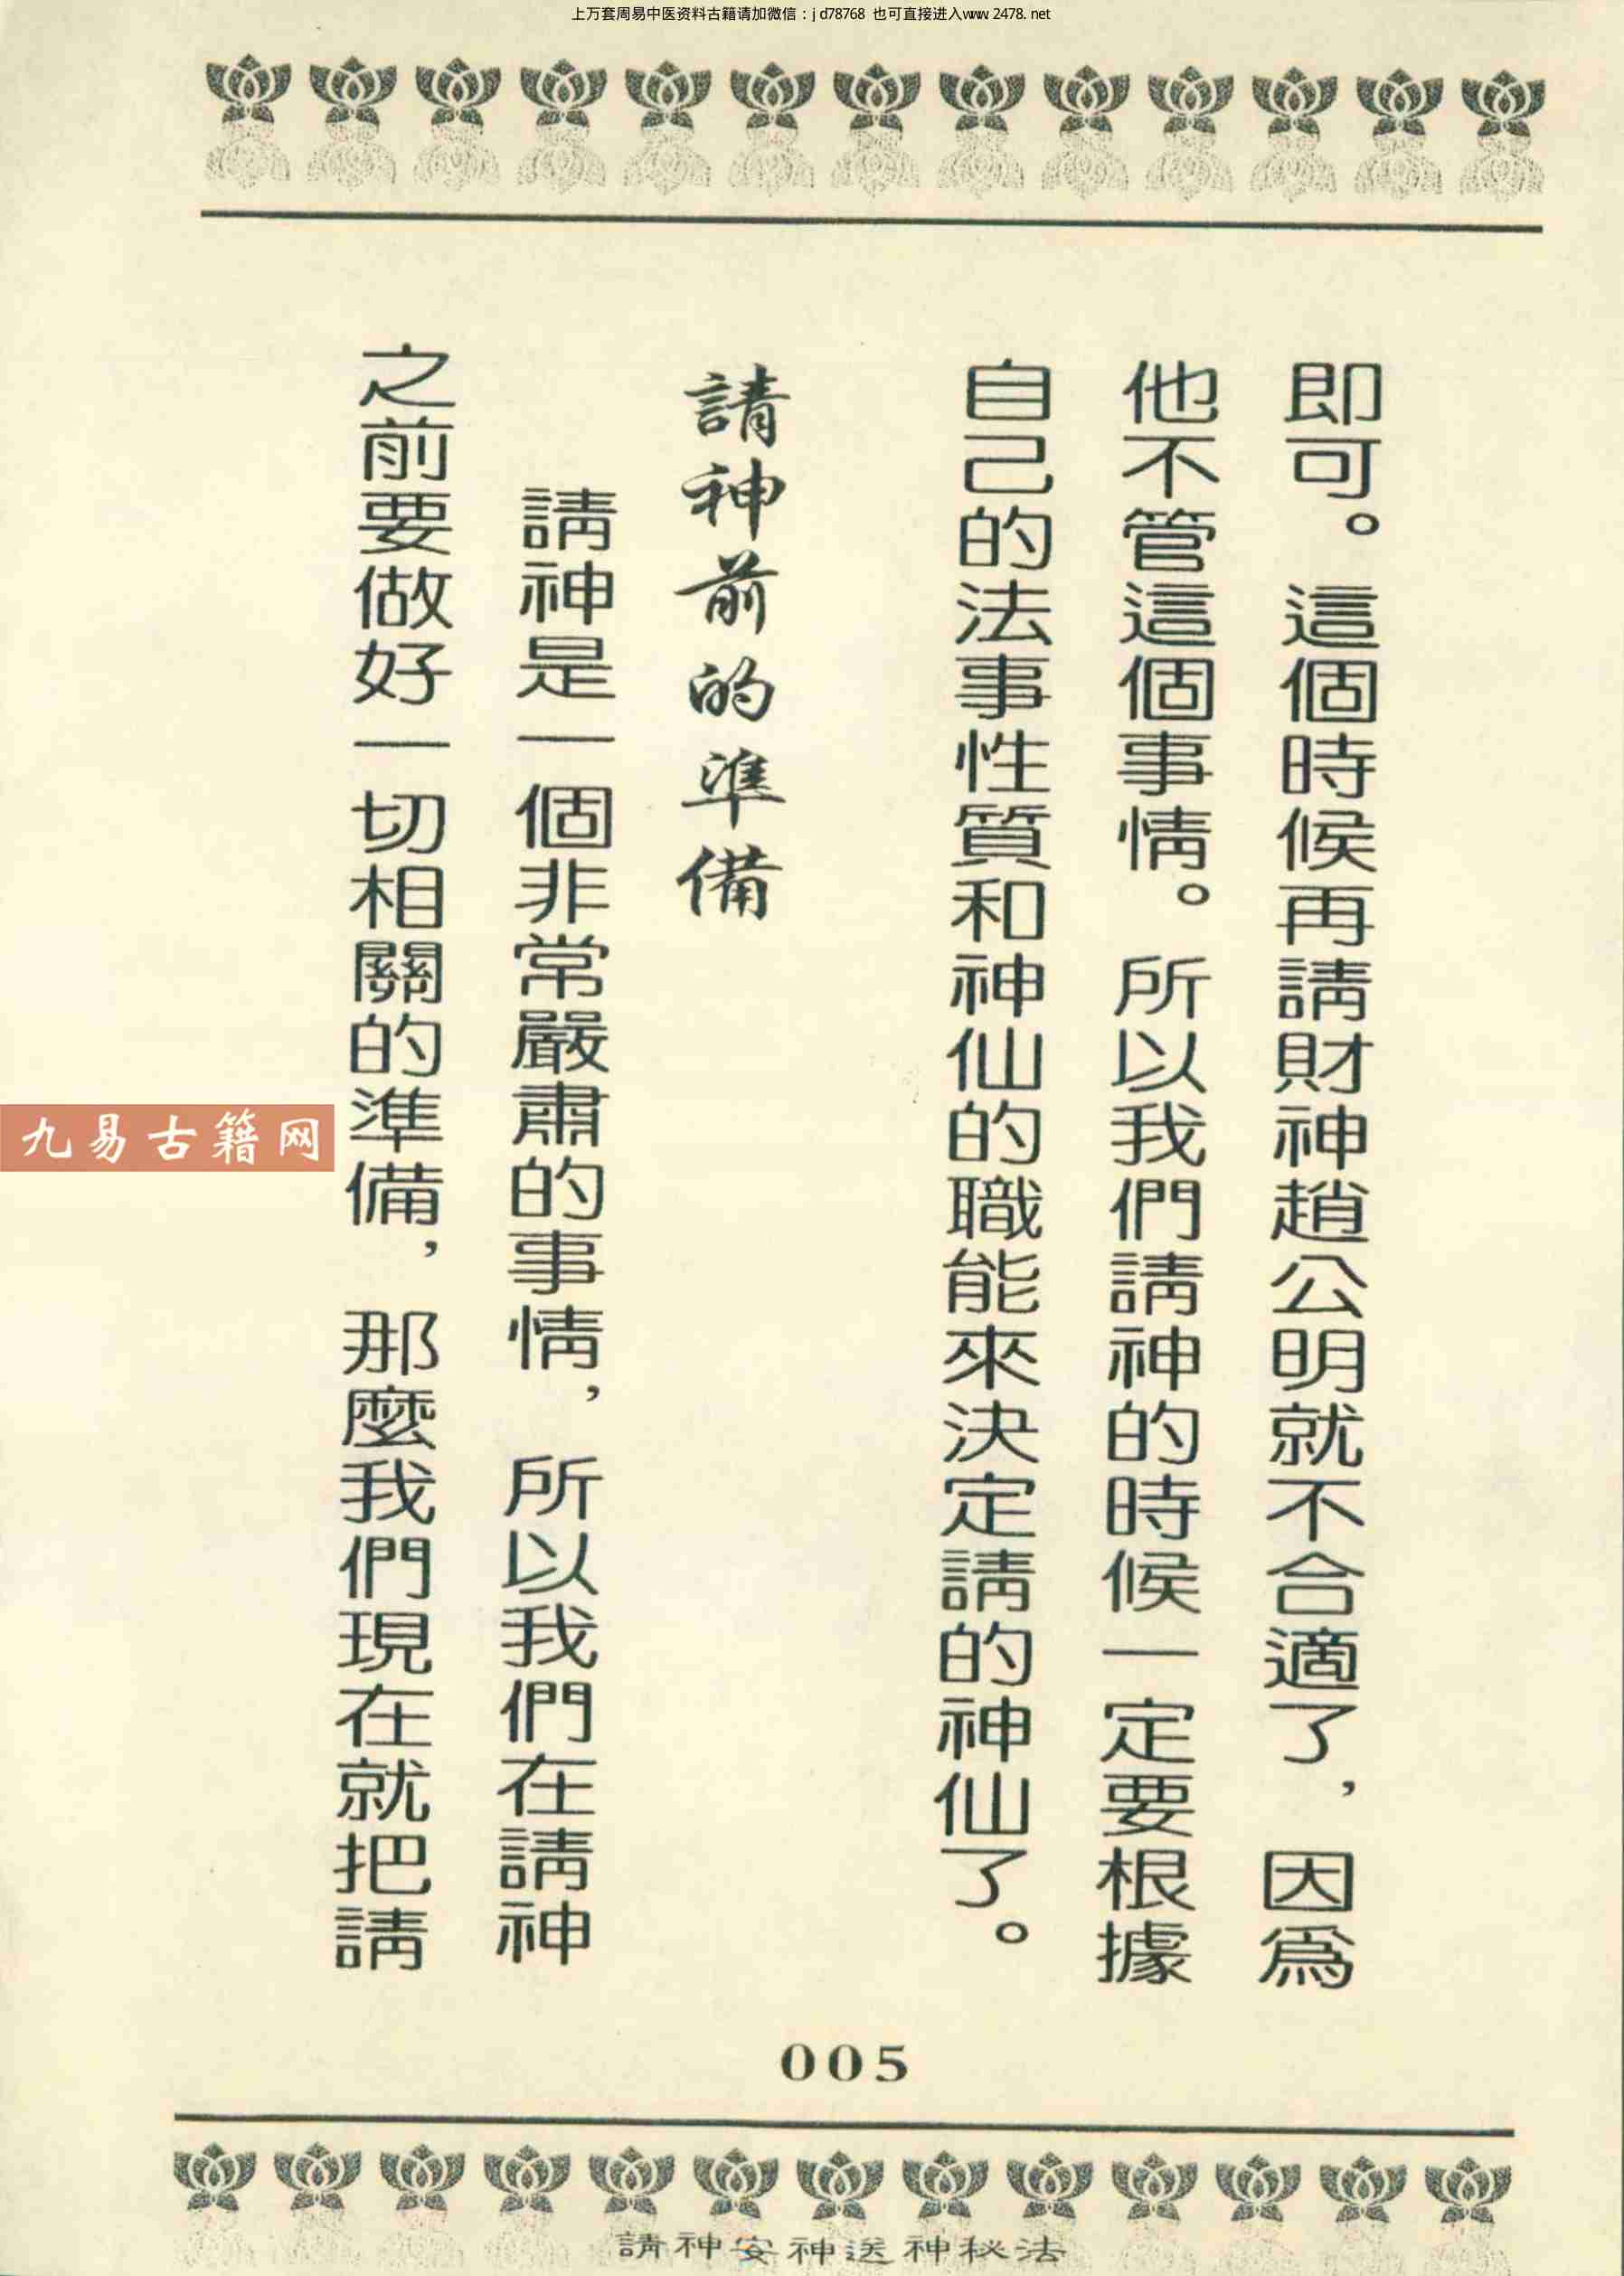 上万套周易中医资料古籍请加微信：jd78768 也可直接进入www.2478.net
即可。這個時候再請財神趙公明就不合適了，因爲
他不管這個事情。所以我們請神的時候一定要根據
自己的法事性質和神仙的職能來決定請的神仙了。
請神前的準備
請神是一個非常嚴肅的事情，所以我們在請神
之前要做好一切相關的準備，那麼我們現在就把請
九易古籍网
005
請神安神送神秘法